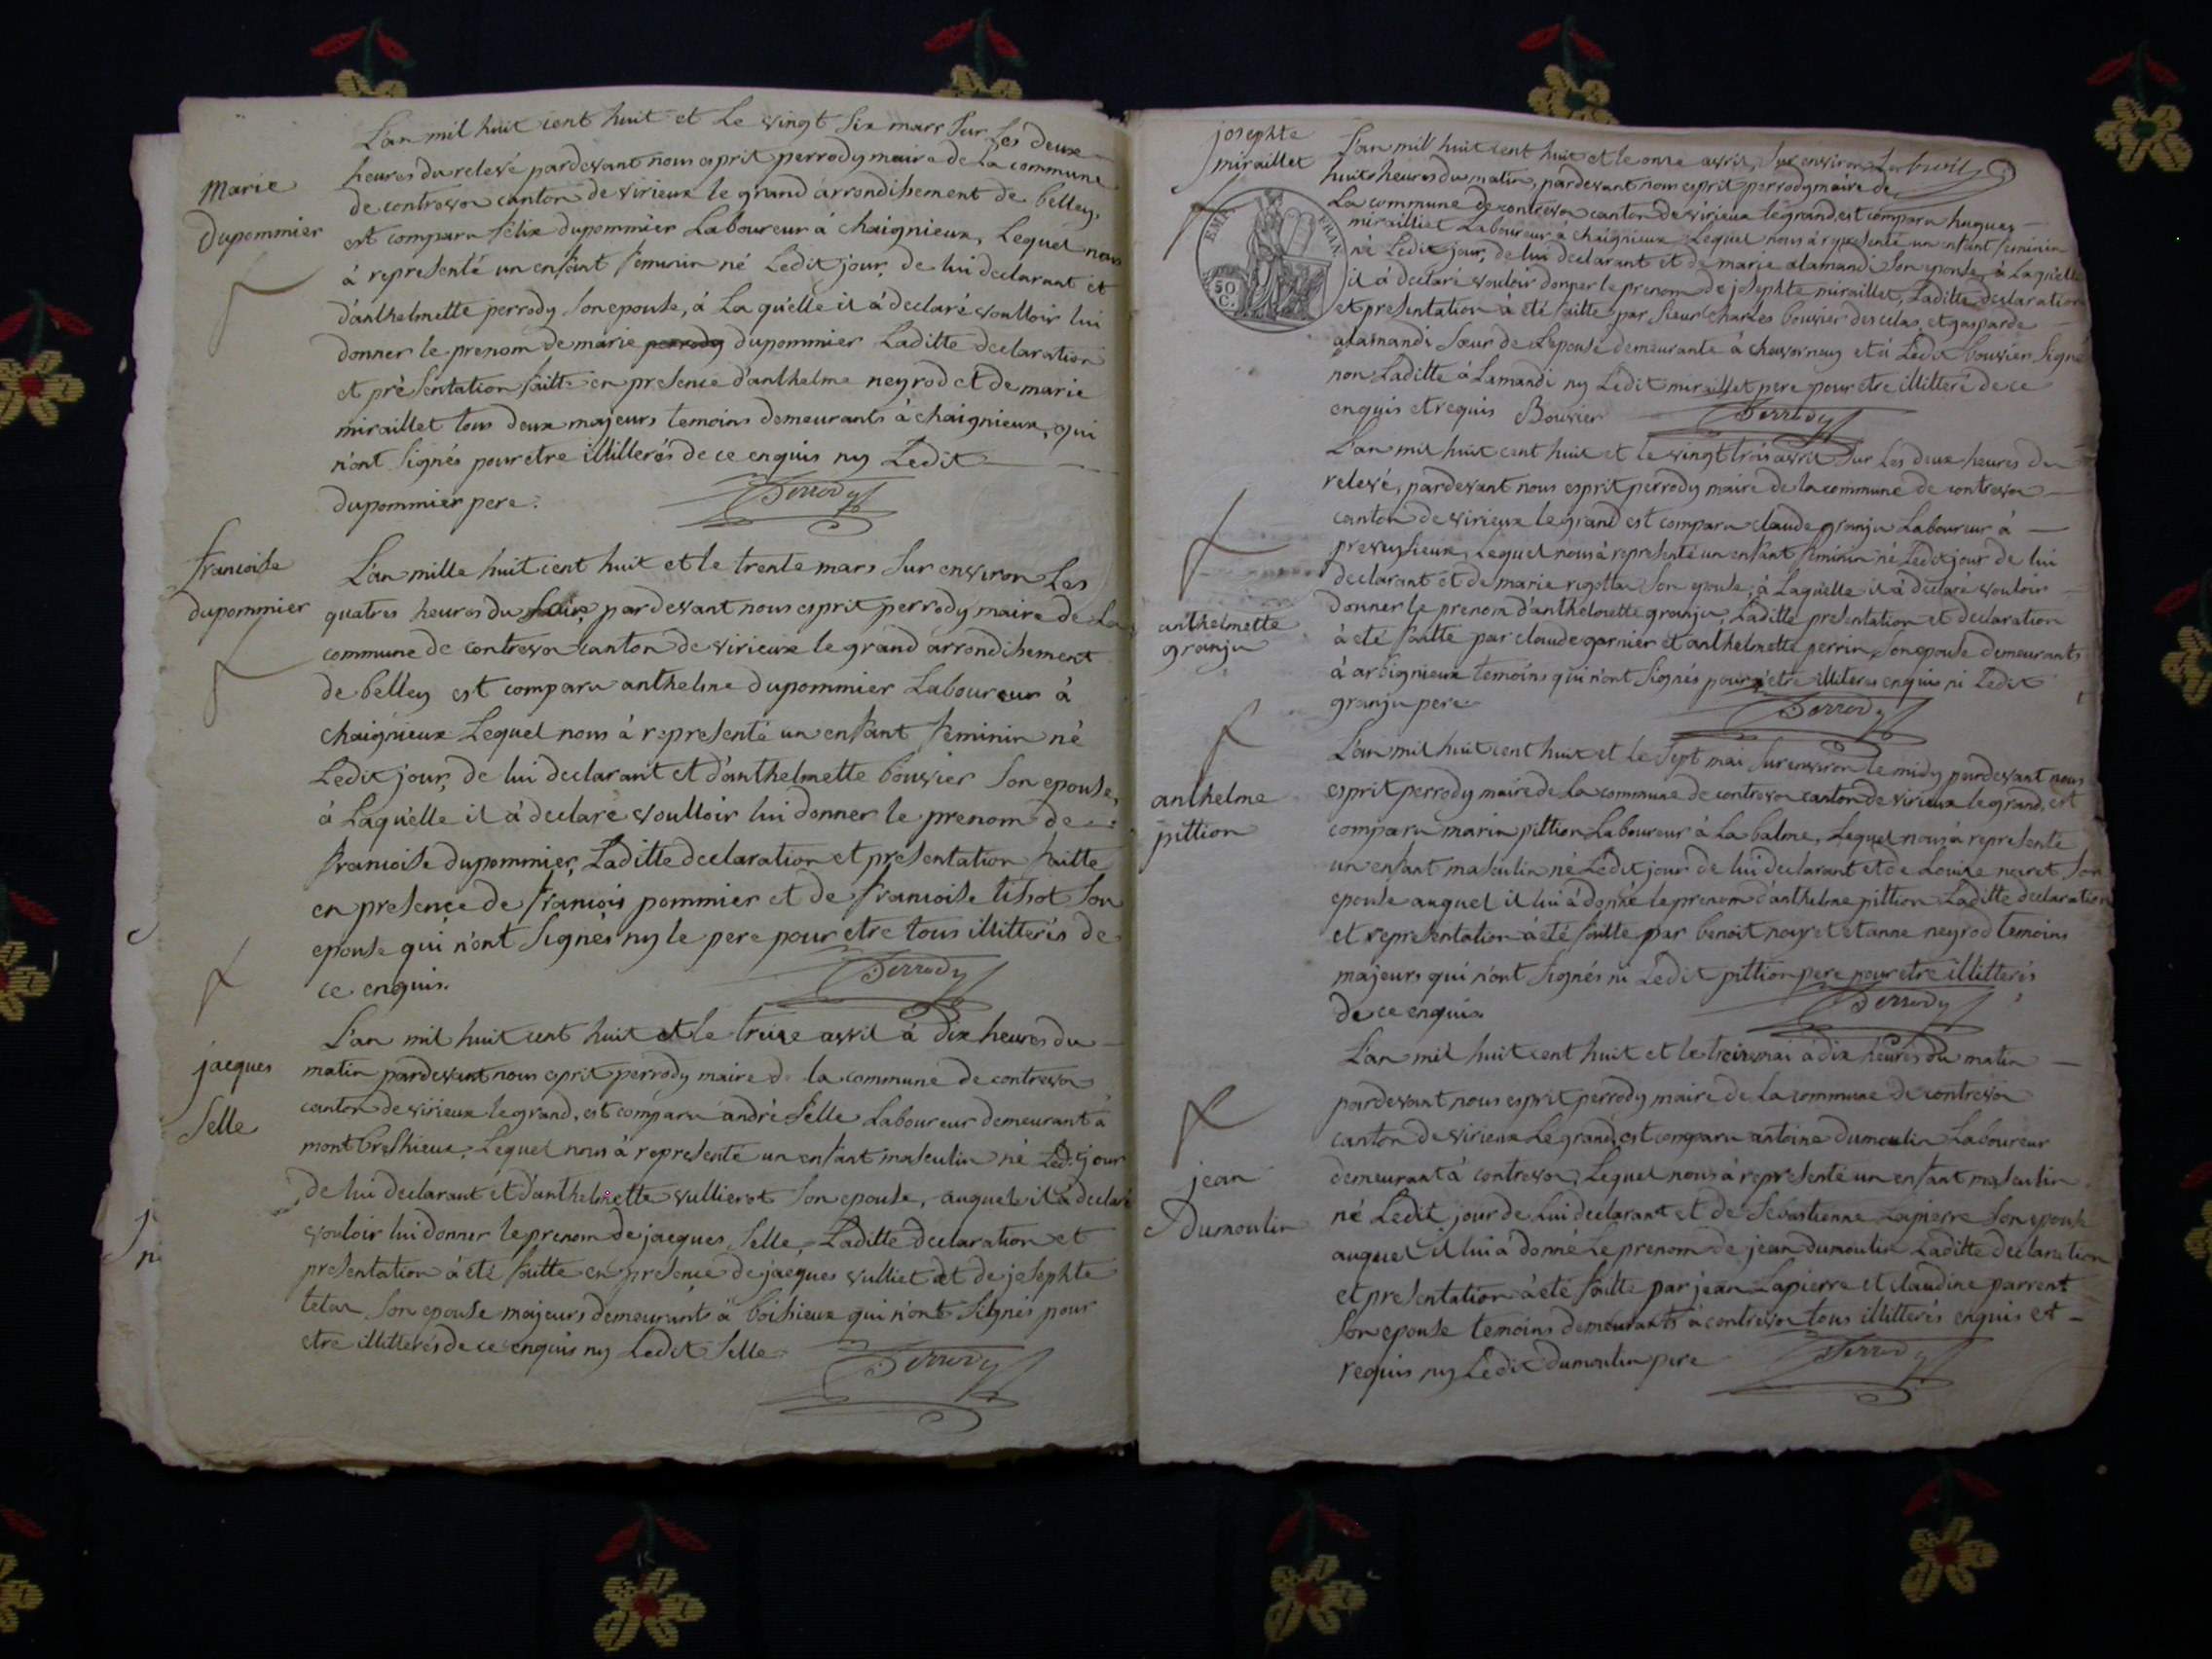 L'an mil huit cent huit et Le vingt six mars sur Les deux
heures du relevé pardevant nous esprit perrody maire de La commune
Marie
de contrevoz canton de virieux le grand arrondissement de belley,
Dupommier
est comparu félix dupommier Laboureur à chaignieux, Lequel nous
à representé un enfant feminin né Ledit jour, de lui declarant et
d'anthelmette perrody son epouse, à La qu'elle il à declaré voulloir lui
donner le prenom de marie perrody dupommier Laditte declaration
et présentation faitte en presence d'anthelme neyrod et de marie
miraillet tous deux majeurs temoins demeurants à chaignieux, qui
n'ont signés pour etre illitterés de ce enquis ny Ledit
dupommier pere.
Perrody
francoise
dupommier
L'an mille huit cent huit et le trente mars sur environ Les
quatres heures du soir, pardevant nous esprit perrody maire de La
commune de contrevoz canton de virieux le grand arrondissement
de belley est comparu anthelme dupommier Laboureur à
chaignieux Lequel nous à representé un enfant feminin né
Ledit jour, de lui declarant et d'anthelmette bouvier son epouse,
à Laqu'elle il à declaré voulloir lui donner le prenom de
francoise dupommier, Laditte declaration et presentation faitte
en presence de françois pommier et de francoise tissot son
epouse qui n'ont signés ny le pere pour etre tous illitterés de
ce enquis.
Perrody
jacques
Selle
L'an mil huit cent huit et le treize avril à dix heures du
matin pardevant nous esprit perrody maire de la commune de contrevoz
canton de virieux le grand, est comparu andré Selle Laboureur demeurant à
montbreshieux, Lequel nous à representé un enfant masculin né Ledit jour
de lui declarant et d'anthelmette vullierot son epouse, auquel il à declaré
vouloir lui donner le prenom de jacques Selle, Laditte declaration et
presentation à eté faitte en presence de jacques vulliet et de josephte
son epouse majeurs demeurants à boissieux qui n'ont signés pour
etre illitterés de ce enquis ny Ledit Selle
Perrody
josephte
miraillet
L'an mil huit cent huit et le onze avril, sur environ Les
huit heures du matin, pardevant nous esprit perrody maire de
La commune de contrevoz canton de virieux le grand, est comparu hugues
miraillet Laboureur à chaignieux Lequel nous à representé un enfant feminin
né Ledit jour, de lui declarant et de marie alamandi son epouse, à Laqu'elle
il à declaré vouloir donner le prenom de josephte miraillet, Laditte declaration
et presentation à eté faitte par sieur charles bouvier et gasparde
alamandi sœur de L'epouse demeurante à chavornay et à Ledit bouvier signé
non Laditte alamandi ny Ledit miraillet pere pour etre illitteré de ce
enquis et requis Bouvier
Perrody
EMP. FRAN.
50
C.
L'an mil huit cent huit et le vingt trois avril sur Les deux heures du
relevé, pardevant nous esprit perrody maire de la commune de contrevoz
canton de virieux le grand est comparu claude granju Laboureur à
preveyzieux, Lequel nous à representé un enfant feminin né Ledit jour de lui
declarant et de marie rigottu son epouse, à Laqu'elle il à declaré vouloir
anthelmette
granju
donner le prenom d'anthelmette granju, Laditte presentation et declaration
à eté faitte par claude garnier et anthelmette perrin son epouse demeurants
à arbignieux temoins qui n'ont signés pour etre illiteres enquis ni Ledit
granju pere
Perrody
anthelme
pittion
L'an mil huit cent huit et le sept mai sur environ le midy pardevant nous
esprit perrody maire de La commune de contrevoz canton de virieux le grand, est
comparu marin pittion Laboureur à La balme, Lequel nous à representé
un enfant masculin né Ledit jour de lui declarant et de Louise neyret son
epouse auquel il lui à donné le prenom d'anthelme pittion Laditte declaration
et representation à eté faitte par benoit neyret et anne neyrod temoins
majeurs qui n'ont signés ni Ledit pittion pere pour etre illitterés
de ce enquis
Perrody
L'an mil huit cent huit et le treize mai à dix heures du matin
pardevant nous esprit perrody maire de La commune de contrevoz
canton de virieux Le grand, est comparu antoine dumoulin Laboureur
jean
Dumoulin
demeurant à contrevoz, Lequel nous à representé un enfant masculin
né Ledit jour de Lui declarant et de Sébastienne Lapierre son epouse
auquel il lui à donné Le prenom de jean dumoulin Laditte declaration
et presentation à eté faitte par jean Lapierre et claudine parrent
son epouse temoins demeurants à contrevoz tous illitterés enquis et
requis ny Ledit Dumoulin pere
Perrody